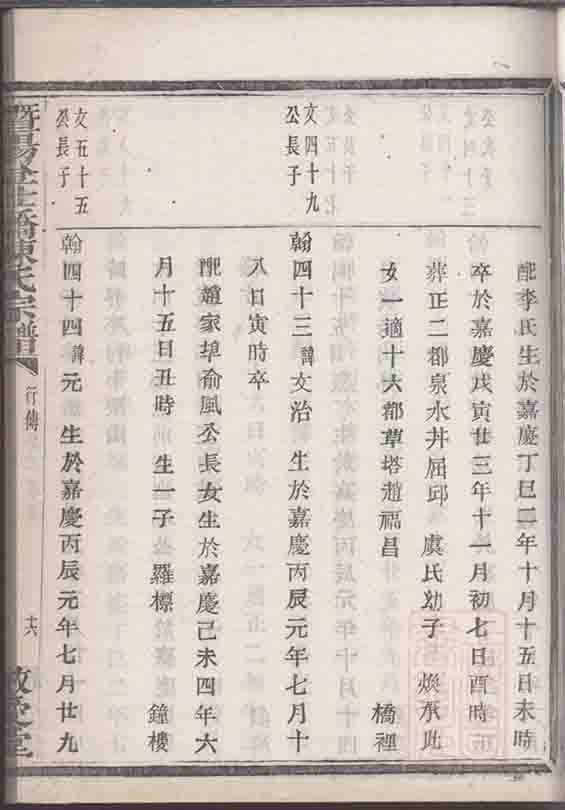 配李氏生於嘉慶丁巳二年十月十五日未時
卒於嘉慶戊寅廿三年十一月初七日酉時
葬正二都泉水井屈邱 虞氏幼子 煥承此
女一適十六都草塔趙福昌 橋裡
文四十九
公長子
翰四十三諱文治 生於嘉慶丙辰元年七月十
八日寅時卒
配趙家埠俞風公長女生於嘉慶己未四年六
月十五日丑時 生一子羅標 鐘樓
文五十五
公長子
翰四十四諱元 生於嘉慶丙辰元年七月廿九
暨陽 橋陳氏宗譜
行傳
十六
敬 堂